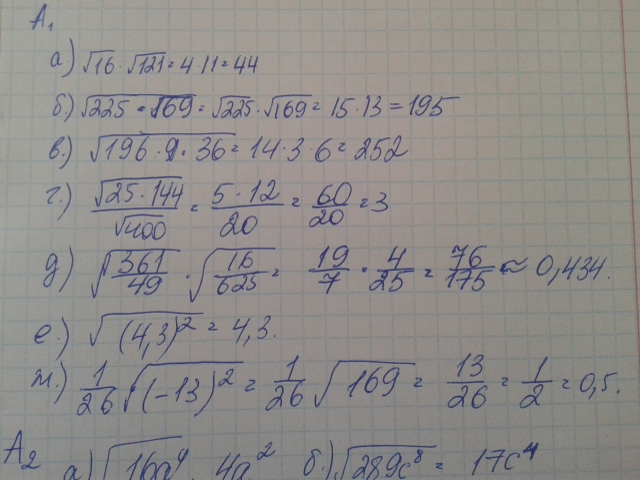 A₁
а) √16 · √121 = 4 · 11 = 44
б.) √225 · 169 = √225 · √169 = 15 · 13 = 195
в.) √196 · 9 · 36 = 14 · 3 · 6 = 252
г.) √25 · 144 / √400 = 5 · 12 / 20 = 60/20 = 3
д) √361/49 · √16/625 = 19/7 · 4/25 = 76/175 ≈ 0,434.
е.) √(4,3)² = 4,3.
ж.) 1/26 √(-13)² = 1/26 √169 = 13/26 = 1/2 = 0,5.
A₂ а) √16a⁴ · 4a² б.) √289c⁸ = 17c⁴